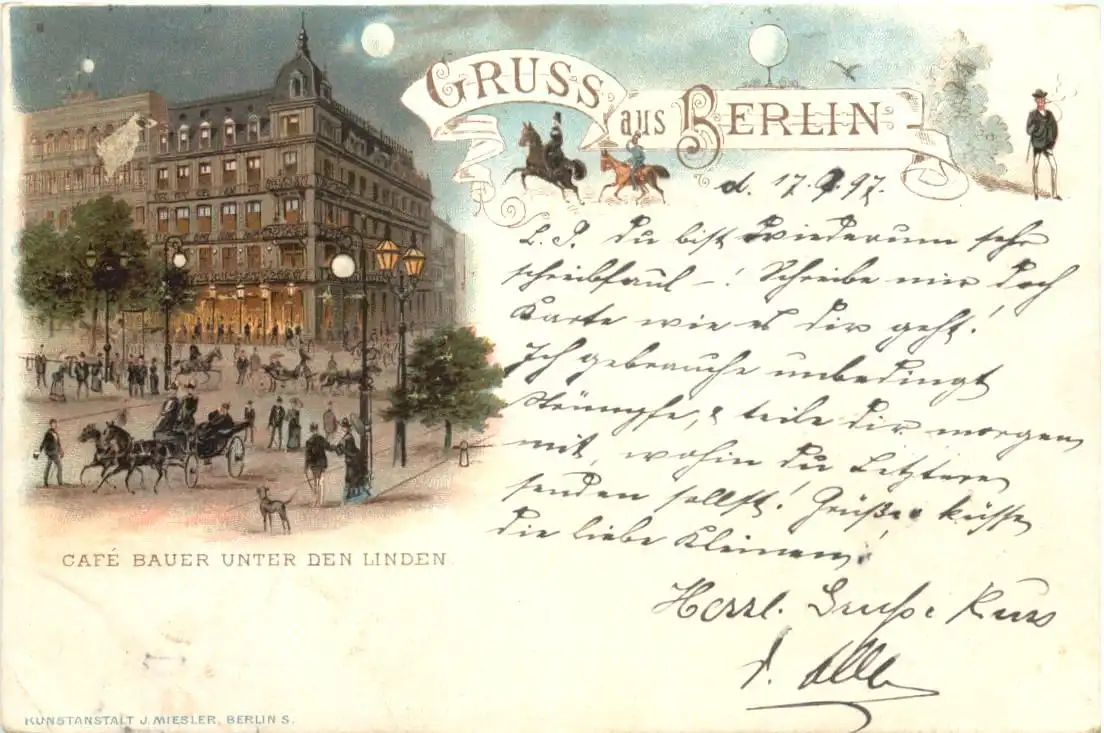 GRUSS aus BERLIN
d. 17. 9. 97.
L. P. Du bist wiederum sehr
schreibfaul –! Schreibe mir doch
Karte wie es dir geht!
Ich gebrauche unbedingt
Strümpfe, & teile dir morgen
mit, wohin du Letztere
senden sollst! Grüße & küsse
die lieben Kleinen
Herzl. Gruß & Kuss
d.
CAFÉ BAUER UNTER DEN LINDEN
KUNSTANSTALT J. MIESLER, BERLIN S.